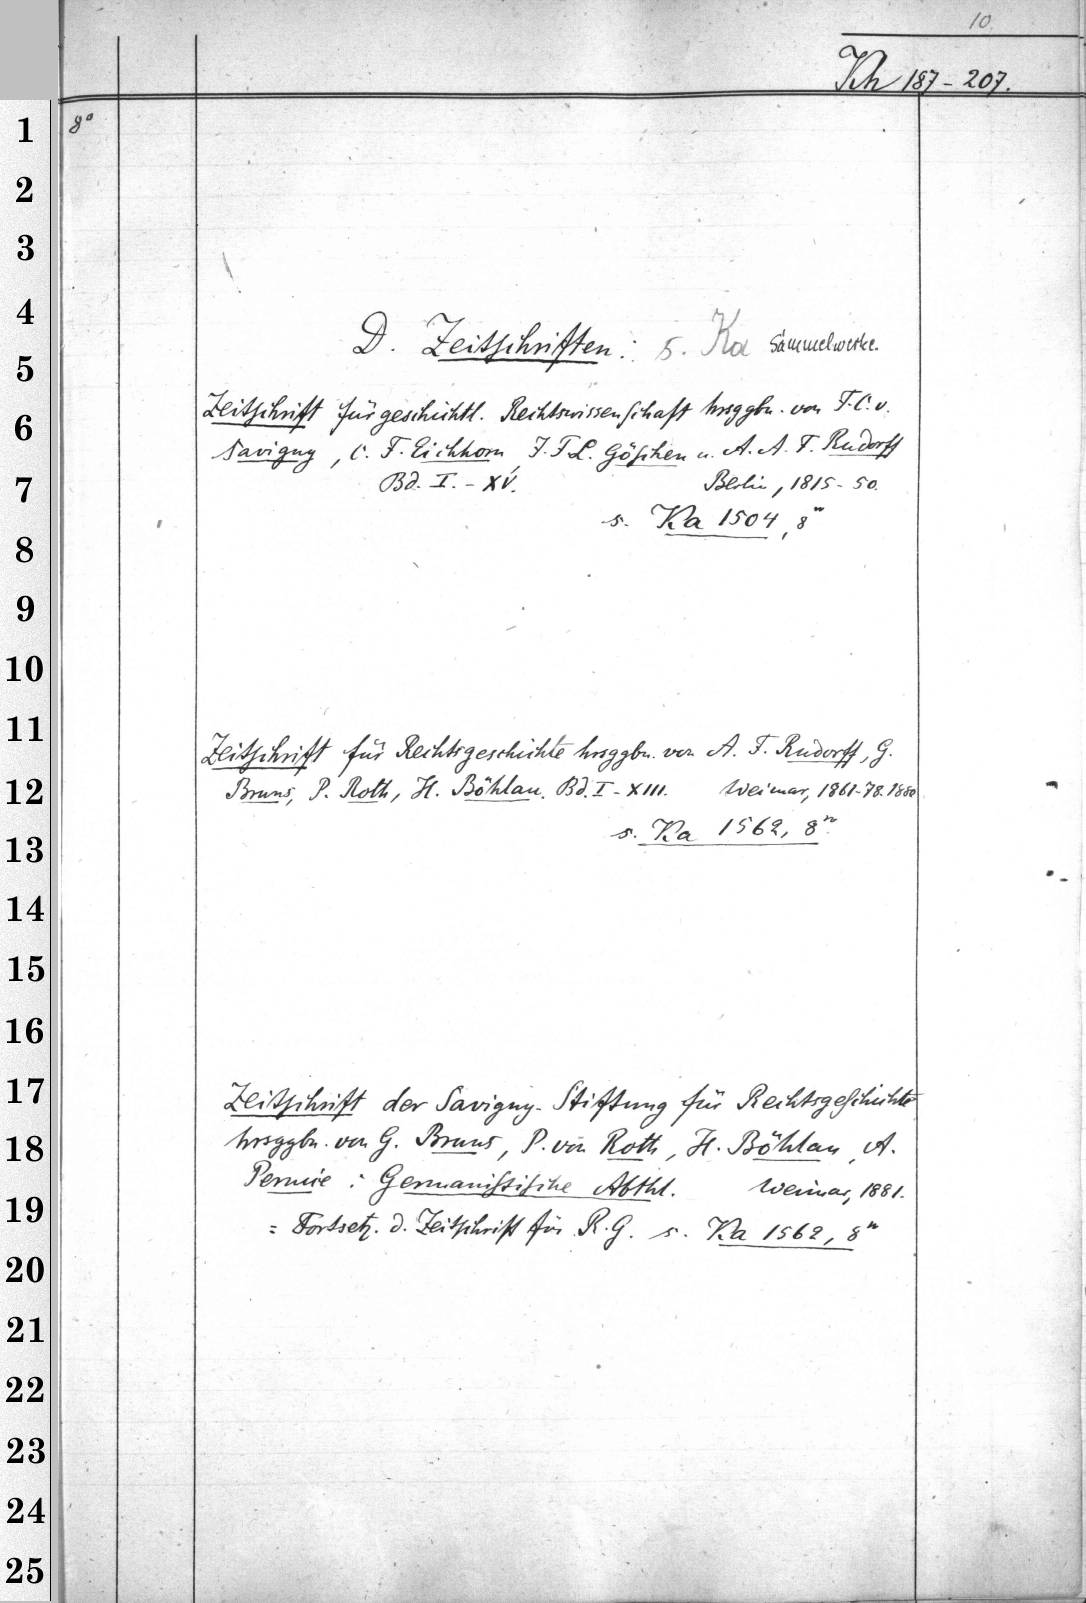 10
Kh 187-207.
8°
D. Zeitschriften: s. Ka Sammelwerke.
Zeitschrift für geschichtl. Rechtswissenschaft hrsggbn. von F. C. v.
Savigny, C. F. Eichhorn, J. F. L. Göschen u. A. A. F. Rudorff
Bd. I. - XV. Berlin, 1815-50.
s. Ka 1504, 8°
Zeitschrift für Rechtsgeschichte hrsggbn. von A. F. Rudorff, G.
Bruns, P. Roth, H. Böhlau. Bd. I - XIII. Weimar, 1861-78. 1880
s. Ka 1562, 8°
Zeitschrift der Savigny-Stiftung für Rechtsgeschichte
hrsggbn. von G. Bruns, P. von Roth, H. Böhlau, A.
Pernice: Germanistische Abthl. Weimar, 1881.
= Fortsetz. d. Zeitschrift für R. G. s. Ka 1562, 8°
1
2
3
4
5
6
7
8
9
10
11
12
13
14
15
16
17
18
19
20
21
22
23
24
25